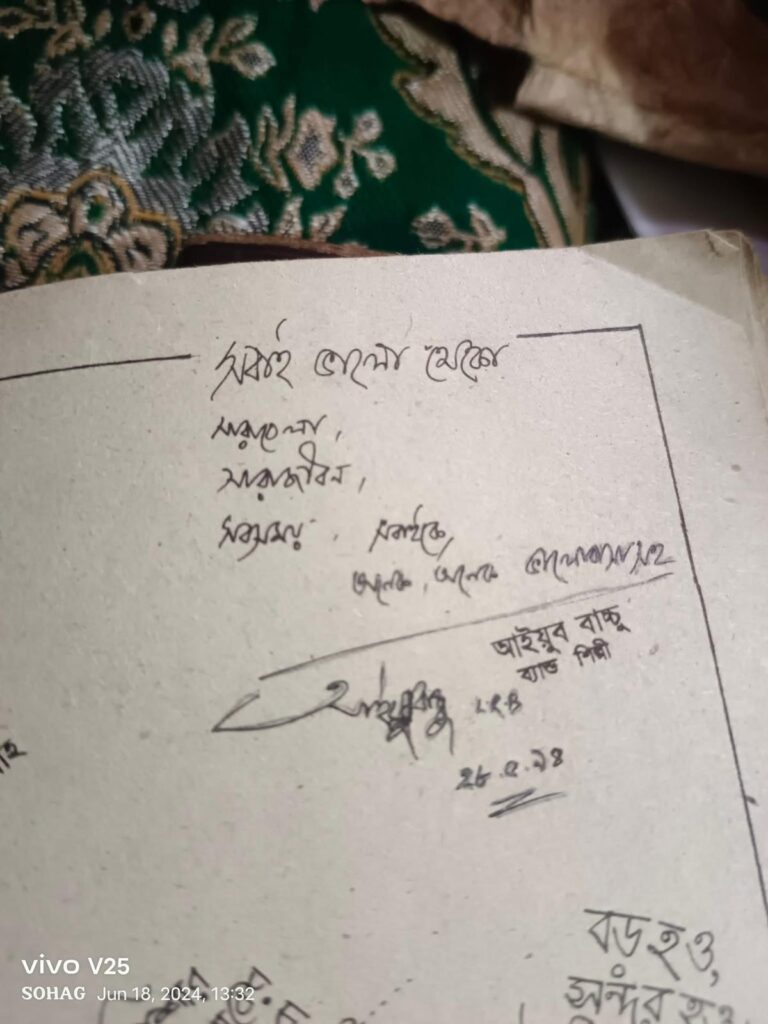 সবাই ভালো থেকো
সারাবেলা,
সারাজীবন,
সবসময়. সবাইকে,
অনেক, অনেক ভালোবাসাসহ
আইয়ুব বাচ্চু
ব্যান্ড শিল্পী
LRB
২৮.৫.৯৪
বড় হও,
সুন্দর হও
vivo V25
SOHAG Jun 18, 2024, 13:32